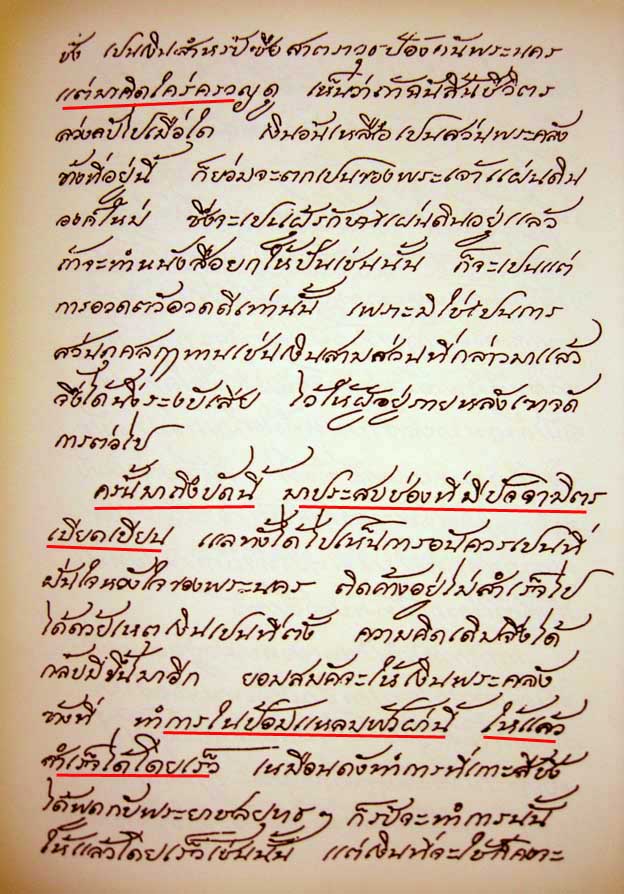 ชั่ง เปนเงินสำหรับซื้อสาตราวุธป้องกันพระนคร
แต่มาคิดใคร่ครวญดู เห็นว่าถ้าฉันสิ้นชีวิตร
ล่วงลับไปเมื่อใด เงินอันเหลือเปนส่วนพระคลัง
ข้างที่อยู่นี้ ก็ย่อมจะตกเปนของพระเจ้าแผ่นดิน
องค์ใหม่ ซึ่งจะเปนผู้รักษาแผ่นดินอยู่แล้ว
ถ้าจะทำหนังสือยกให้ปันเช่นนั้น ก็จะเปนแต่
การอวดตัวอวดดีเท่านั้น เพราะมิใช่เปนการ
ส่วนกุศลฤๅทานเช่นเงินสามส่วนที่กล่าวมาแล้ว
จึ่งได้นิ่งระงับเสีย ไว้ให้ผู้อยู่ภายหลังเขาจัด
การต่อไป
ครั้นมาถึงบัดนี้ มาประสบช่องที่มีปัจจามิตร
เบียดเบียน แลทั้งได้ไปเห็นการอันควรเปนที่
มั่นใจหวังใจของพระนคร ติดค้างอยู่ไม่สำเร็จไป
ได้ด้วยเหตุเงินเปนที่ตั้ง ความคิดเดิมจึ่งได้
กลับมีขึ้นมาอีก ยอมสมัคจะให้เงินพระคลัง
ข้างที่ ทำการในป้อมแหลมฟ้าผ่านี้ ให้แล้ว
สำเร็จได้โดยเร็ว เหมือนดังทำการที่เกาะสีชัง
ได้พูดกับพระยาชลยุทธ ๆ ก็รับจะทำการนั้น
ให้แล้วโดยเร็วเช่นนั้น แต่เงินที่จะใช้ก็คงจะ